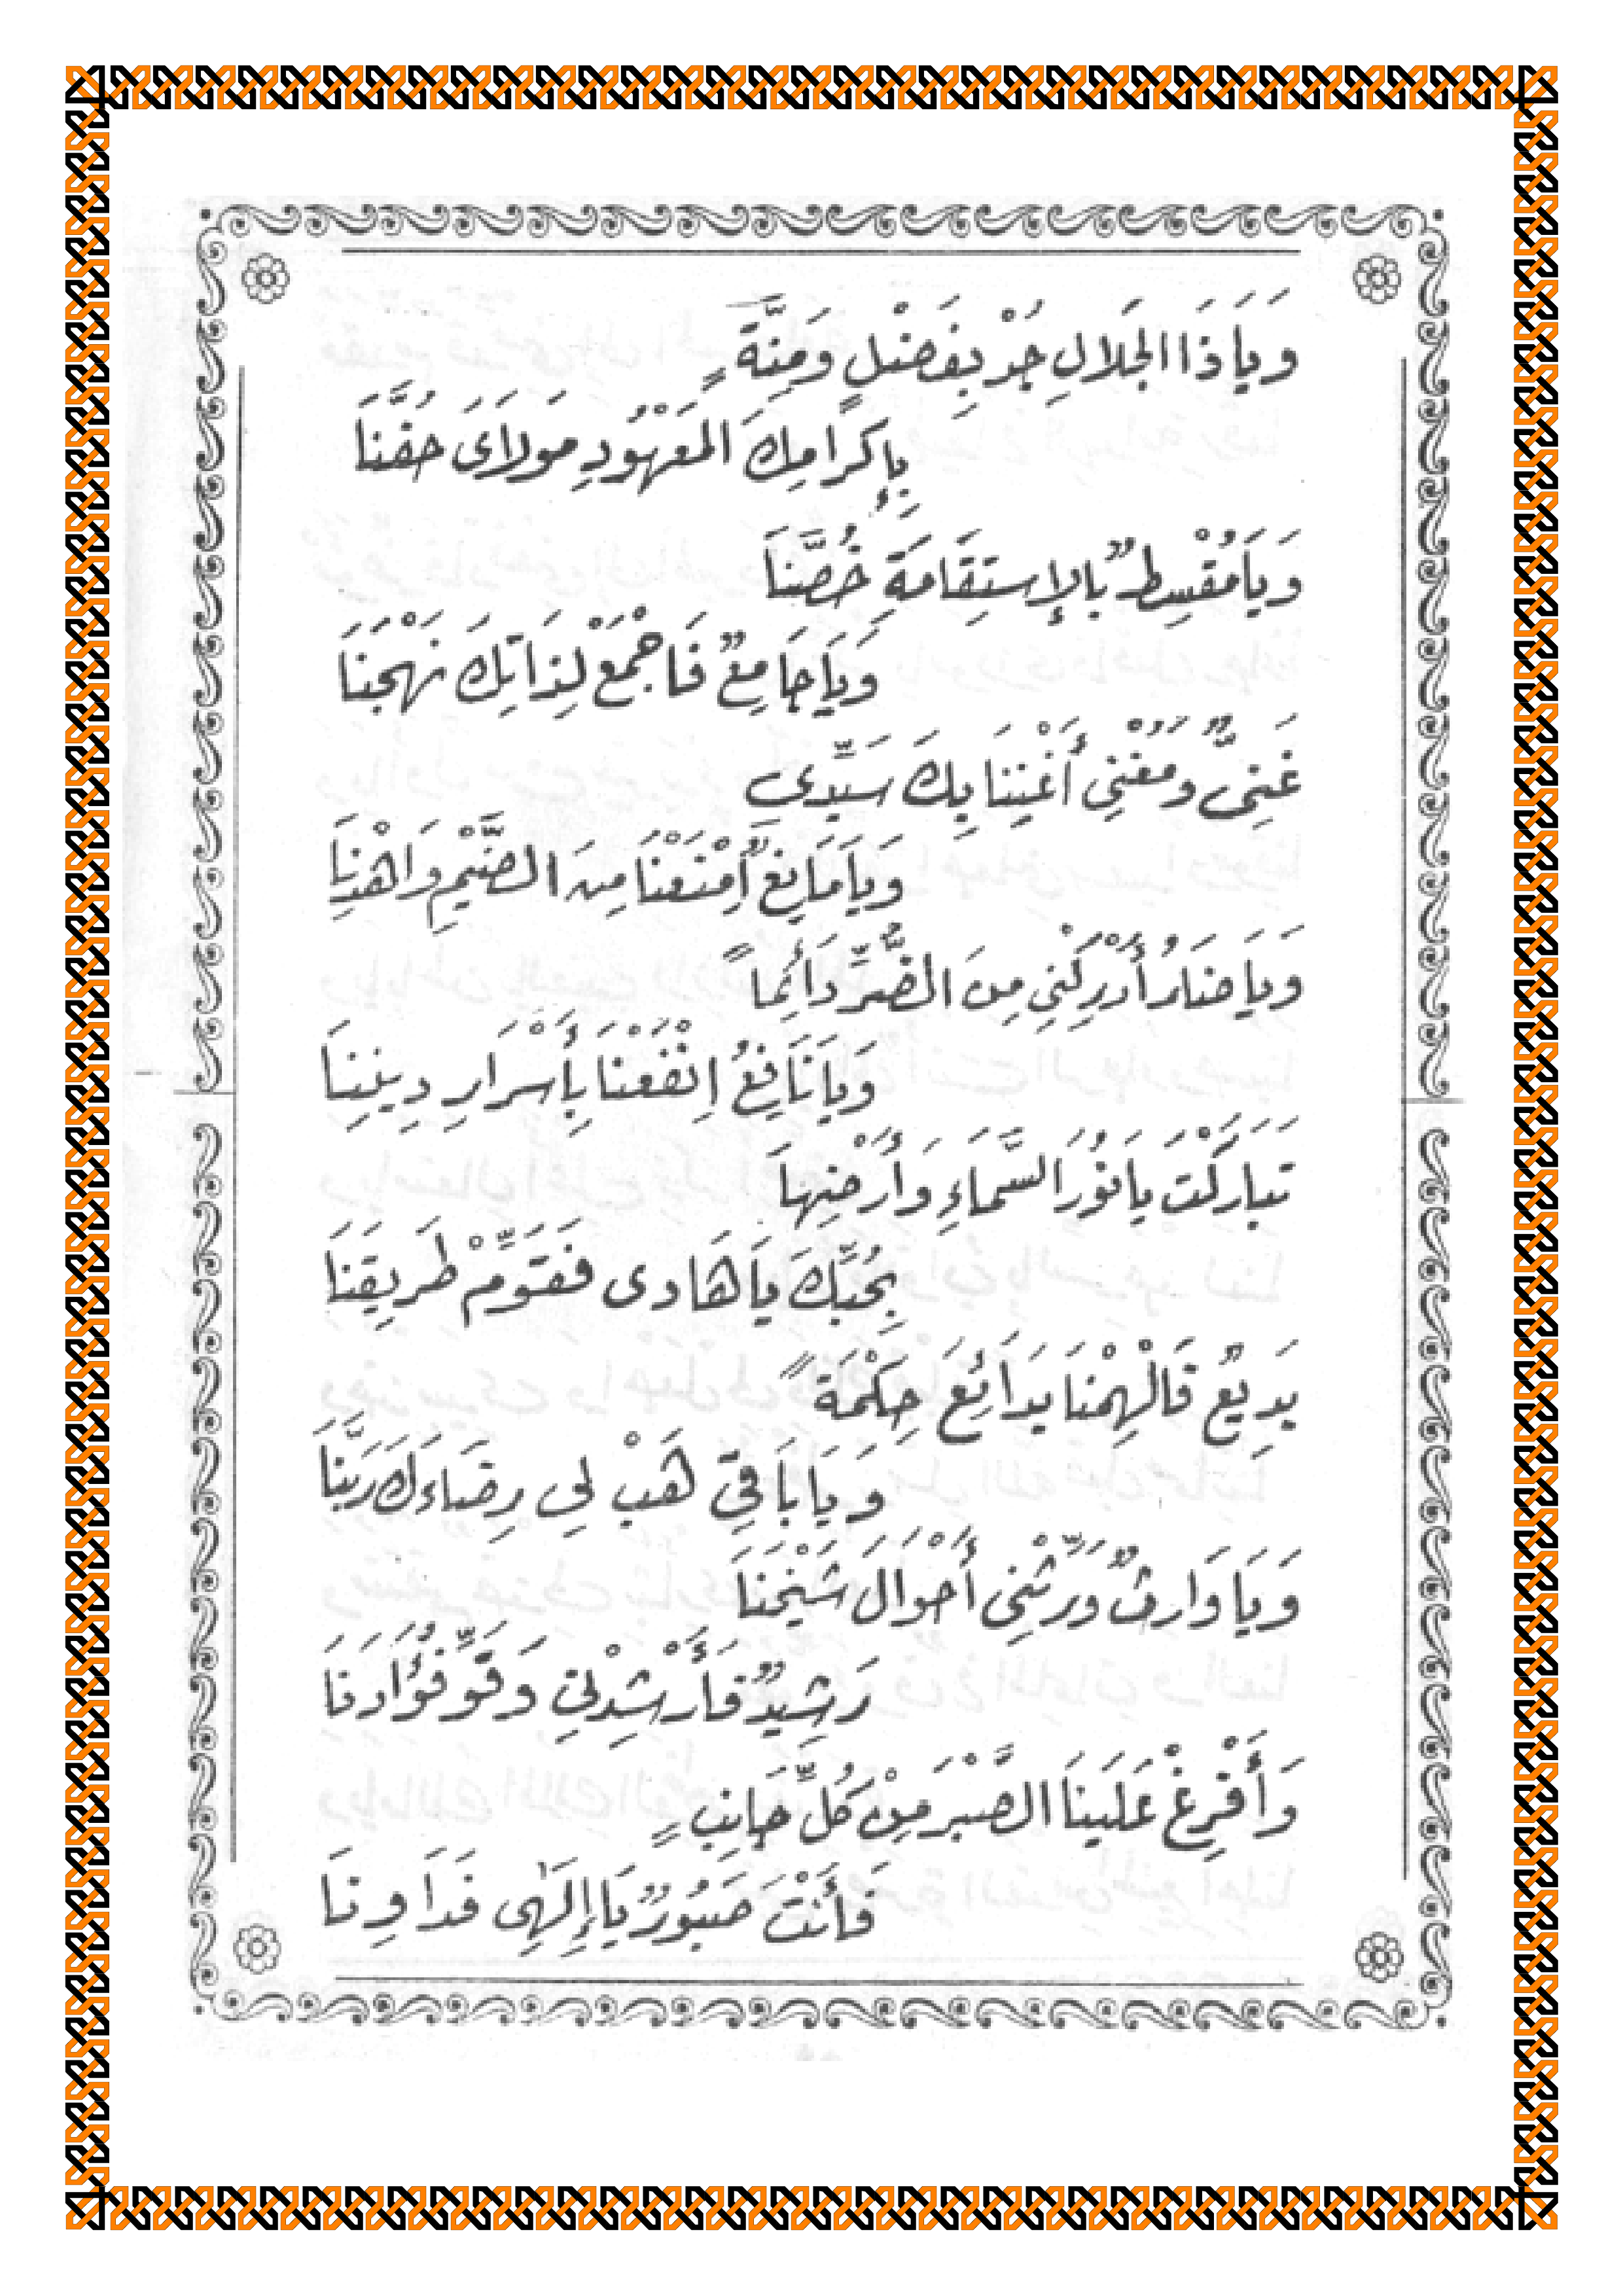 وَيَاذَا الجَلَالِ جُدْ بِفَضْلٍ وَمِنَّةٍ
بِإِكْرَامِكَ المَعْهُودِ مَولَاىَ حُفَّنَا
وَيَامُقْسِطٌ بالإِستِقَامَةِ خُصَّنَا
وَيَاجَامِعٌ فَاجْمَعْ لِذَاتِكَ نَهْجَنَا
غَنِىٌّ وَمُغْنِى أَغْنِنَا بِكَ سَيِّدِي
وَيَامَانِعٌ اِمْنَعْنَا مِنَ الضَّيْمِ وَاهْدِنَا
وَيَاضَارُ أَدْرِكْنِي مِنَ الضُّرِّ دَائِماً
وَيَانَافِعُ اِنْفَعْنَا بِأَسْرَارِ دِينِنَا
تَبَارَكْتَ يَانُورَ السَّمَاءِ وَأَرْضِهَا
بِحُبِّكَ يَاهَادى فَقَوِّمْ طَرِيقَنَا
بَدِيعٌ فَالْهِمْنَا بَدَائِعَ حِكْمَةً
وَيَابَاقِي هَبْ لِي رِضَاءَكَ رَبَّنَا
وَيَاوَارِثٌ وَرِّثْنِى أَحْوَالَ شَيْخِنَا
رَشِيدٌ فَأَرْشِدْنِي وَقَوِّ فُؤَادَنَا
وَأَفْرِغْ عَلَينَا الصَّبْرَ مِنْ كُلِّ جَانِبٍ
فَأَنْتَ صَبُورٌ يَاإِلَهِى فَدَاوِنَا